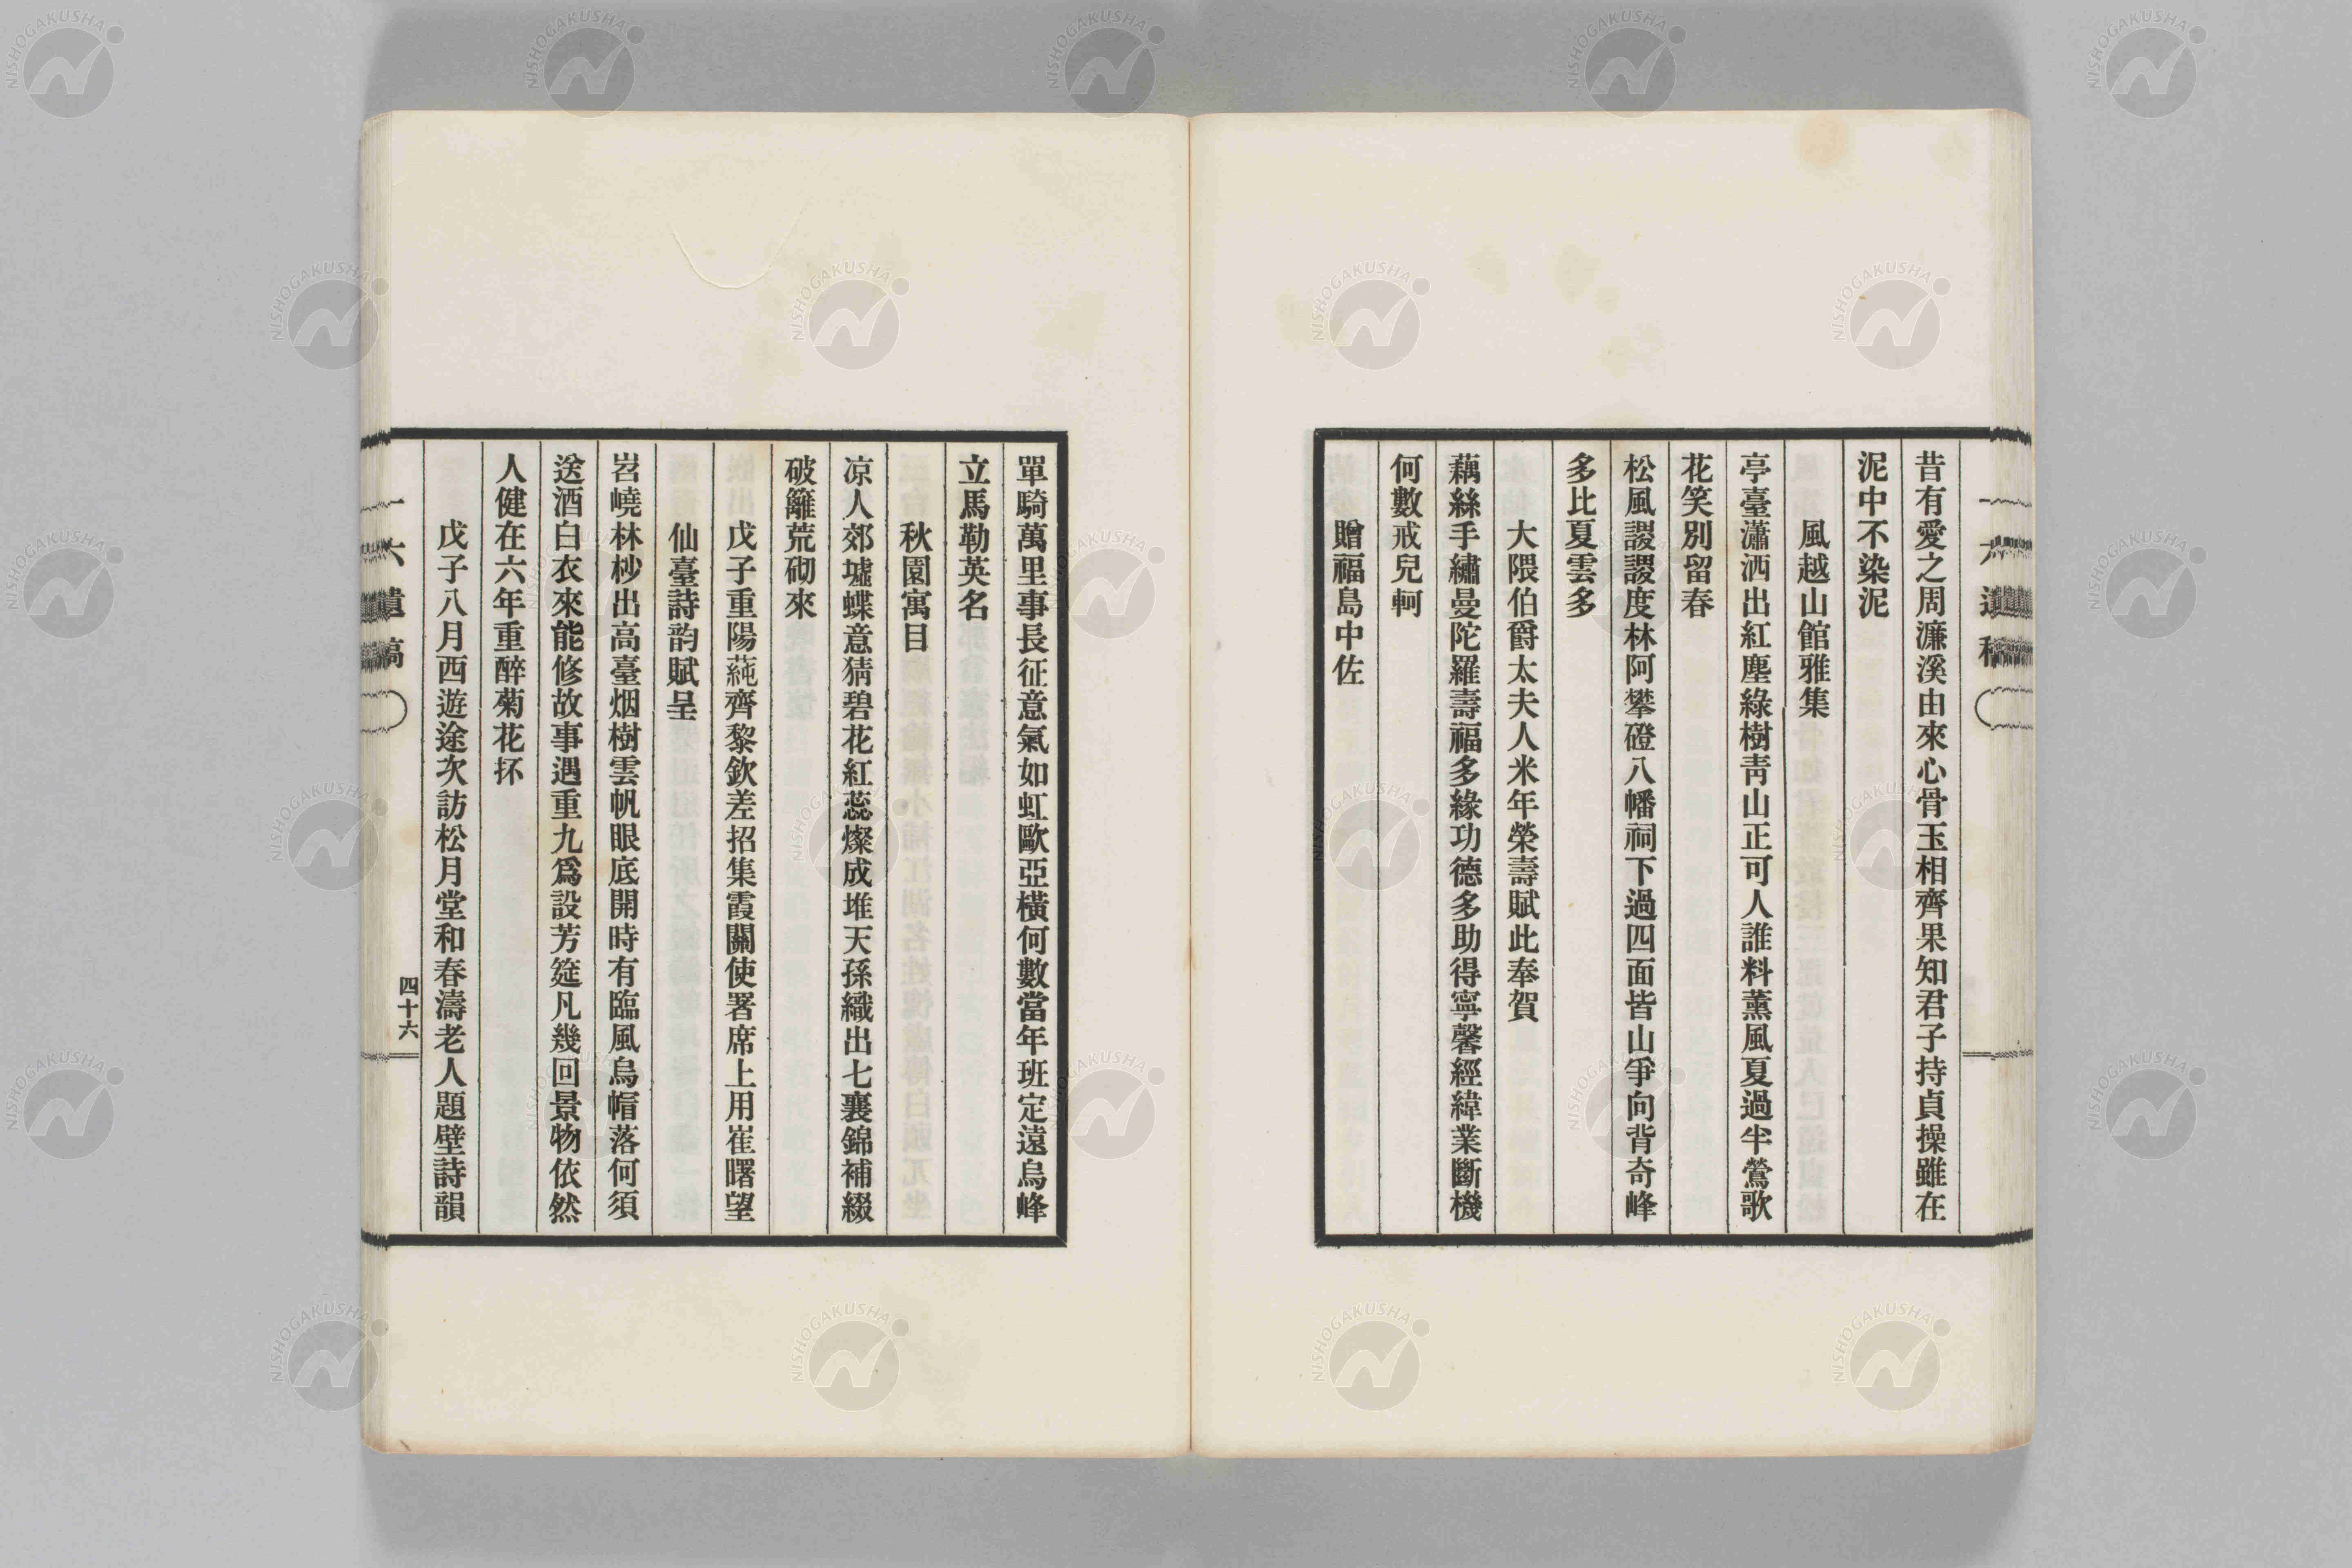 昔有愛之周濂溪由來心骨玉相齊果知君子持貞操雖在
泥中不染泥
風越山館雅集
亭臺瀟洒出紅塵綠樹靑山正可人誰料薰風夏過半鶯歌
花笑別留春
松風謖謖度林阿攀磴八幡祠下過四面皆山爭向背奇峰
多比夏雲多
大隈伯爵太夫人米年榮壽賦此奉賀
藕絲手繡曼陀羅壽福多緣功德多助得寧馨經緯業斷機
何數戒兒軻
贈福島中佐
單騎萬里事長征意氣如虹歐亞橫何數當年班定遠烏峰
立馬勒英名
秋園寓目
凉人郊墟蝶意猜碧花紅蕊燦成堆天孫織出七襄錦補綴
破籬荒砌來
戊子重陽蒓齊黎欽差招集霞關使署席上用崔曙望
仙臺詩韵賦呈
岧嶢林杪出高臺烟樹雲帆眼底開時有臨風烏帽落何須
送酒白衣來能修故事遇重九爲設芳筵凡幾回景物依然
人健在六年重醉菊花抔
戊子八月西遊途次訪松月堂和春濤老人題壁詩韻
一六遺稿
四十六
NISHOGAKUSHA